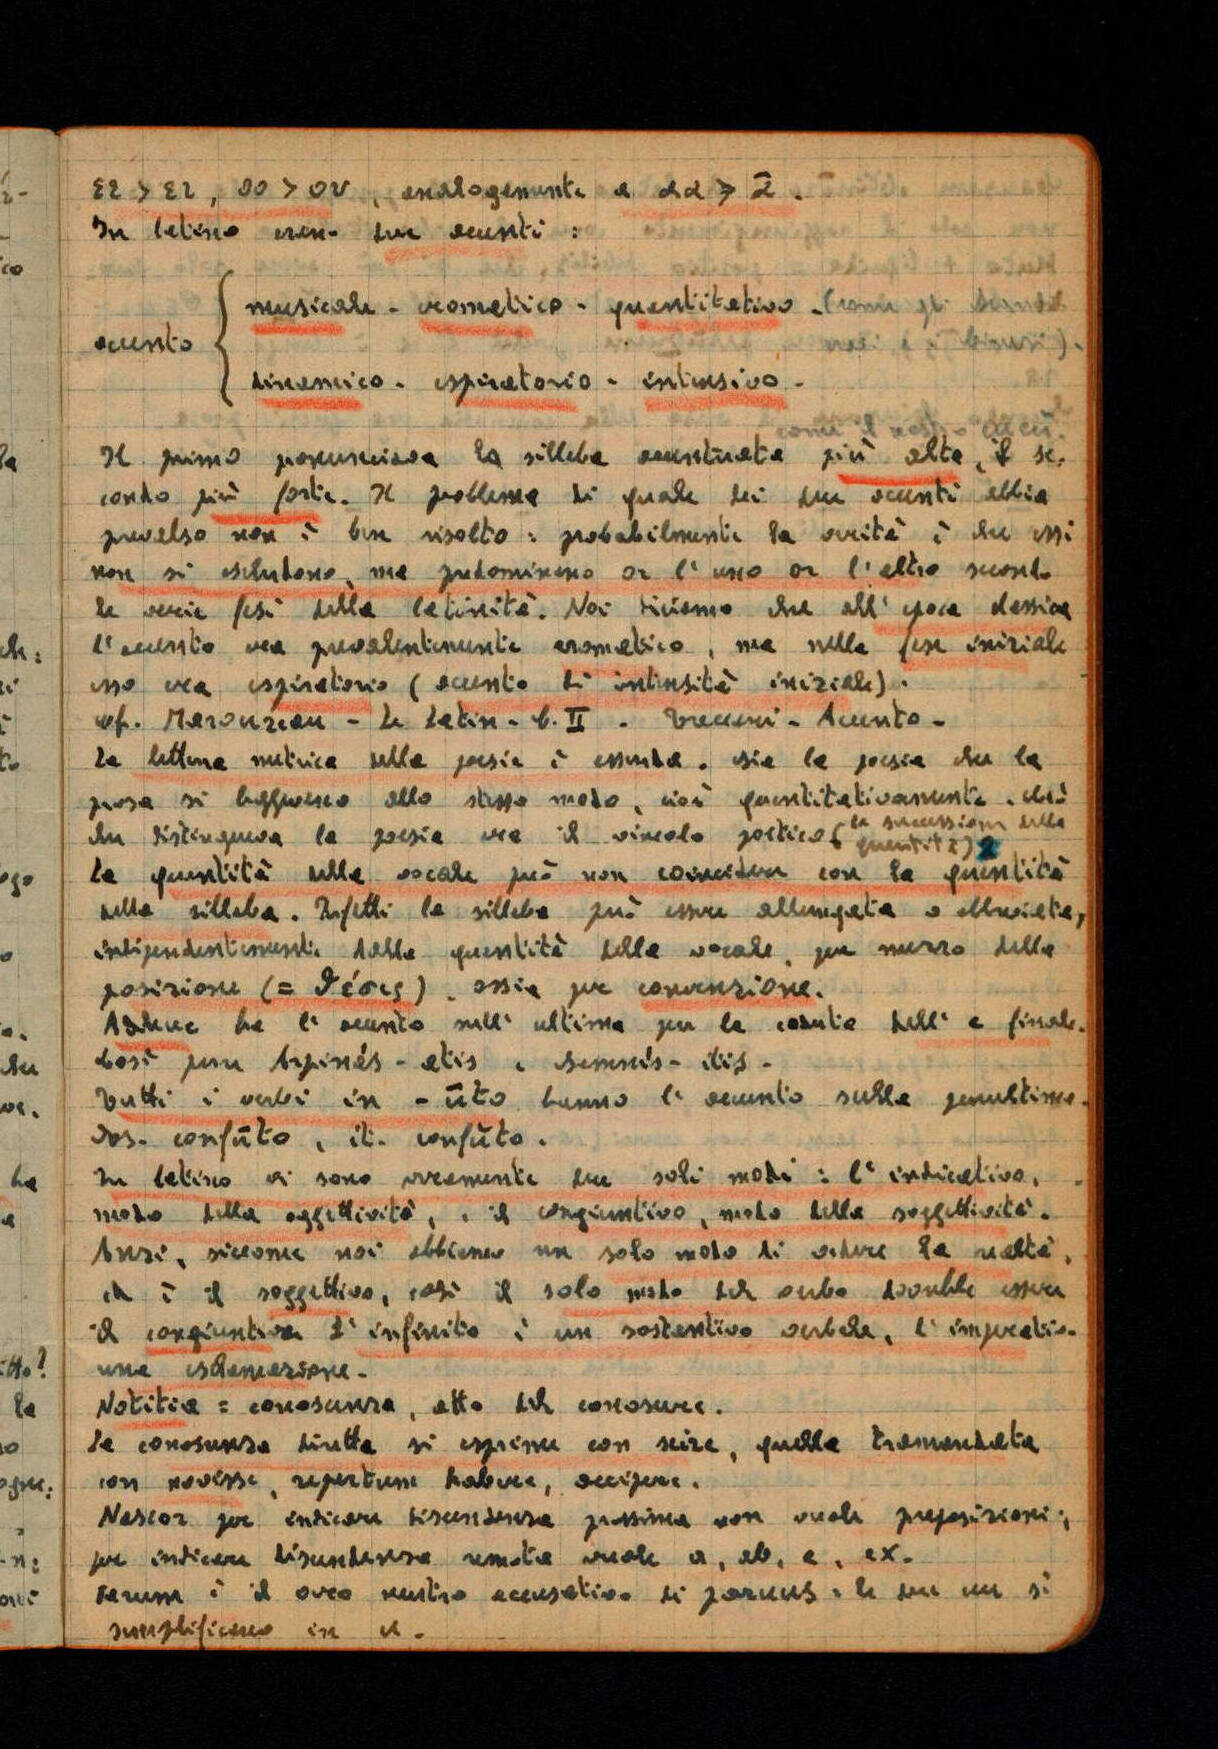 εε > ει, οο > ου, analogamente a αα > ᾱ.
In latino erano due accenti:
accento
musicale - cromatico - quantitativo - (come gli
dinamico - espiratorio - intensivo -
come il nostro
Il primo pronunciava la sillaba accentuata più alta, il se-
condo più forte. Il problema di quale dei due accenti abbia
prevalso non è ben risolto: probabilmente la verità è che essi
non si escludono, ma predominano or l'uno or l'altro secondo
le varie fasi della latinità. Noi diciamo che all'epoca classica
l'accento era prevalentemente cromatico, ma nella fase iniziale
esso era espiratorio (accento di intensità iniziale).
cfr. Marouzeau - Le Latin - C. II - Treccani - Accento -
La lettura metrica della poesia è assurda. Sia la poesia che la
prosa si leggevano allo stesso modo, cioè quantitativamente. Ciò
che distingueva la poesia era il vincolo poetico (la successione delle
quantità)
La quantità della vocale può non coincidere con la quantità
della sillaba. Infatti la sillaba può essere allungata o abbreviata,
indipendentemente dalla quantità della vocale, per mezzo della
posizione (= θέσις), ossia per convenzione.
Adhuc ha l'accento sull'ultima per la caduta dell'e finale.
Così pure Arpinás - atis, e Samnís - itis -
Tutti i verbi in -ūto hanno l'accento sulla penultima.
Os. confūto, it. confùto.
In latino vi sono veramente due soli modi: l'indicativo,
modo della oggettività, e il congiuntivo, modo della soggettività.
Anzi, siccome noi abbiamo un solo modo di vedere la realtà,
ch è il soggettivo, così il solo modo del verbo dovrebbe essere
il congiuntivo. L'infinito è un sostantivo verbale, l'imperativo
una esclamazione.
Notitia = conoscenza, atto del conoscere.
La conoscenza diretta si esprime con scire, quella tramandata
con novisse, repertum habere, accipere.
Nascor per indicare discendenza prossima non vuole preposizioni;
per indicare discendenza remota vuole a, ab, e, ex.
Parum è il vero neutro accusativo di parvus: le due uu si
semplificano in u.